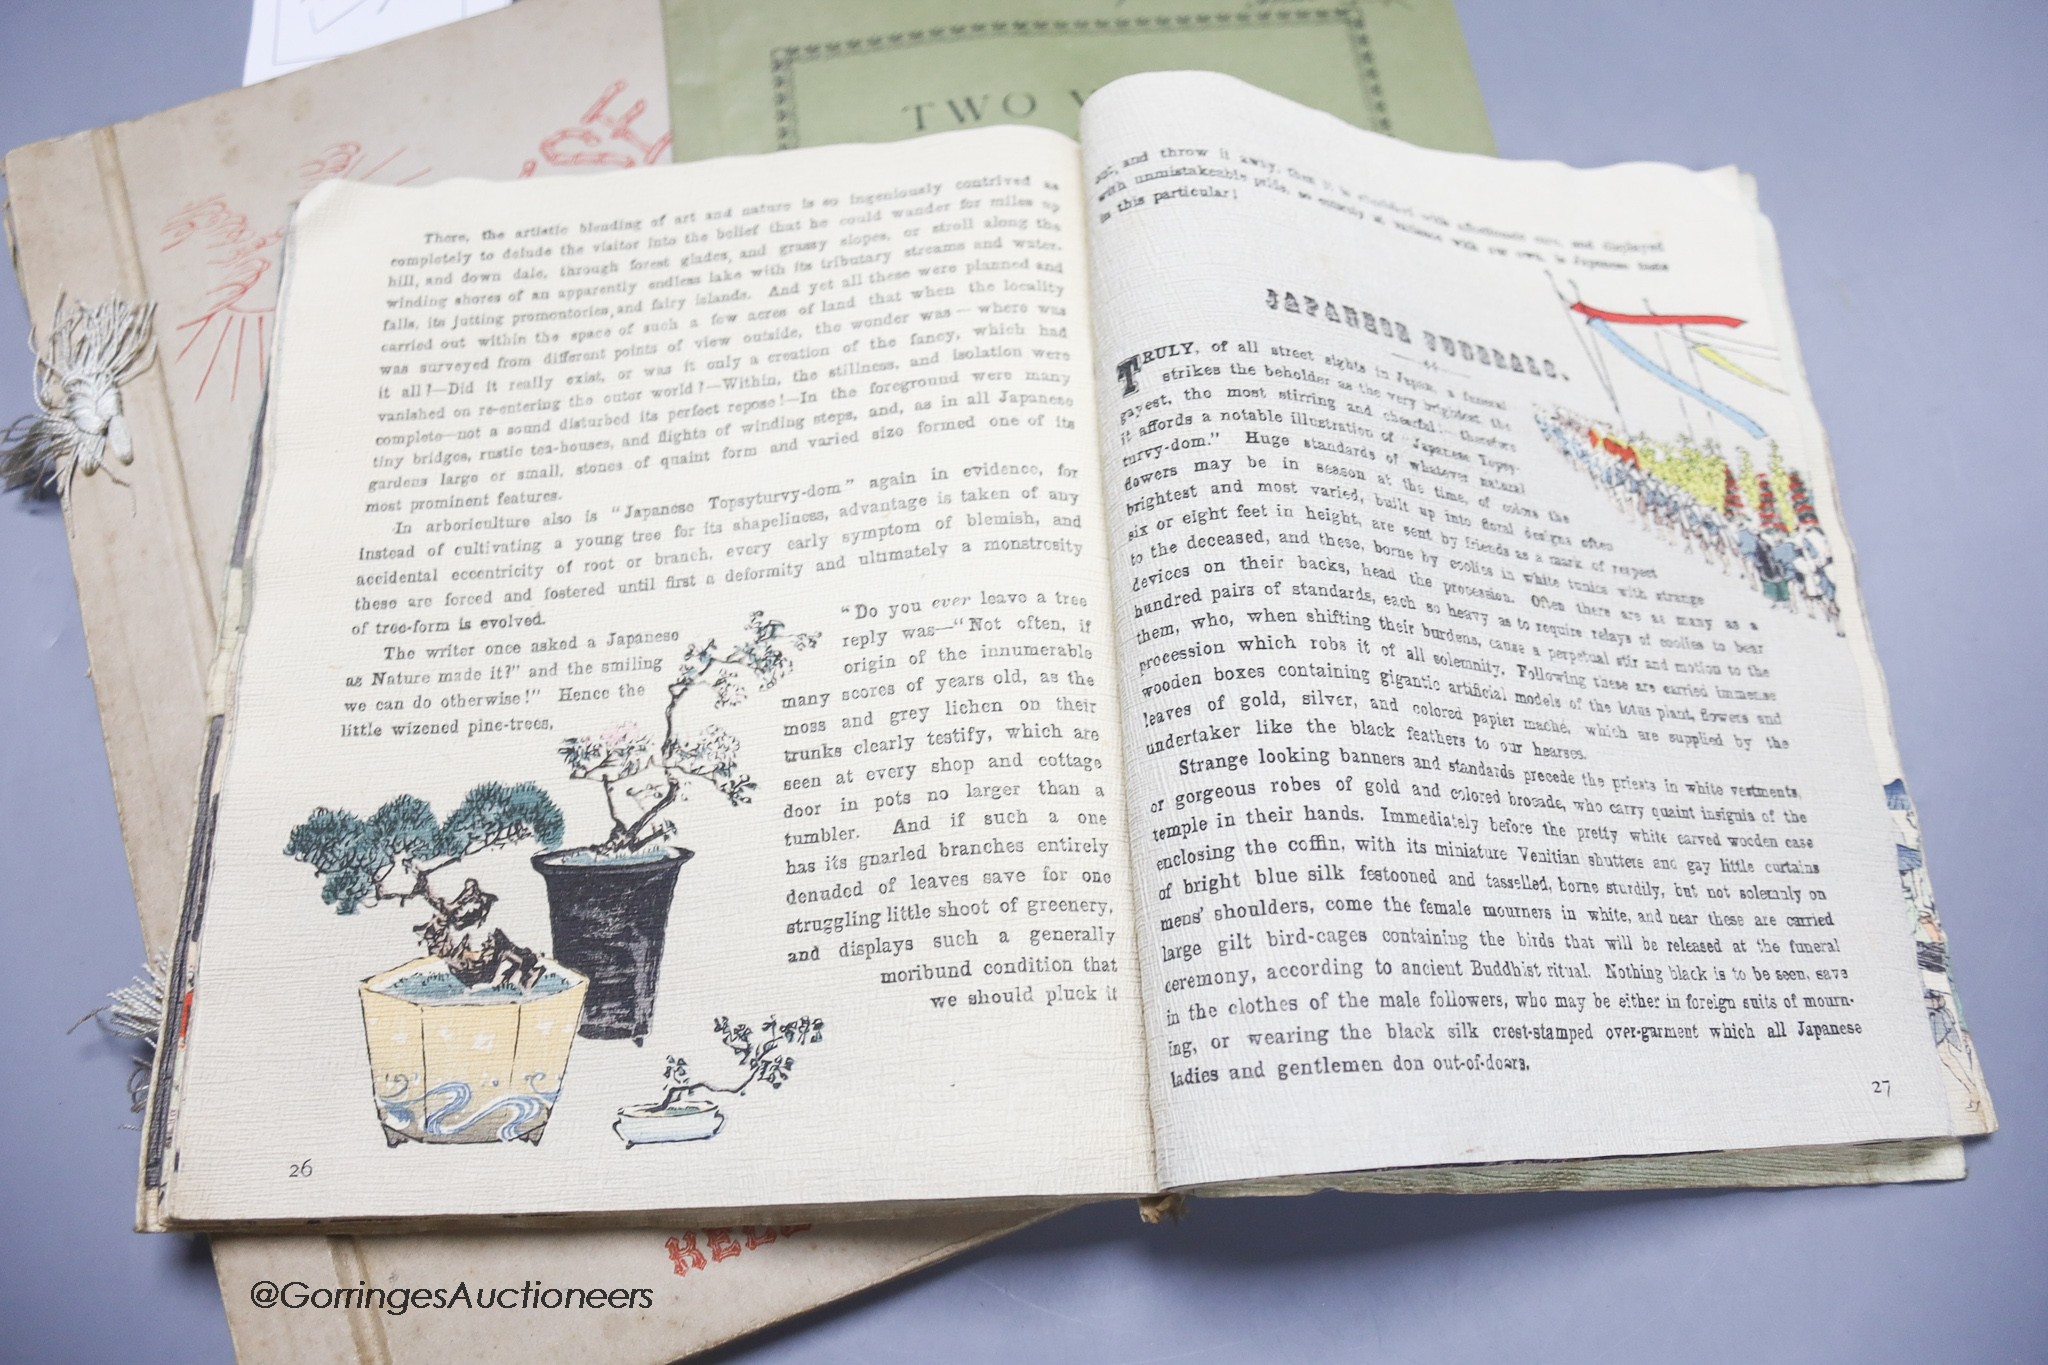 TWO
There, the artistic blending of art and nature is so ingeniously contrived as
completely to delude the visitor into the belief that he could wander for miles up
hill, and down dale, through forest glades, and grassy slopes, or stroll along the
winding shores of an apparently endless lake with its tributary streams and water-
falls, its jutting promontories, and fairy islands. And yet all these were planned and
carried out within the space of such a few acres of land that when the locality
was surveyed from different points of view outside, the wonder was—where was
it all?—Did it really exist, or was it only a creation of the fancy, which had
vanished on re-entering the outer world?—Within, the stillness, and isolation were
complete—not a sound disturbed its perfect repose!—In the foreground were many
tiny bridges, rustic tea-houses, and flights of winding steps, and, as in all Japanese
gardens large or small, stones of quaint form and varied size formed one of its
most prominent features.
In arboriculture also is "Japanese Topsyturvy-dom" again in evidence, for
instead of cultivating a young tree for its shapeliness, advantage is taken of any
accidental eccentricity of root or branch, every early symptom of blemish, and
these are forced and fostered until first a deformity and ultimately a monstrosity
of tree-form is evolved.
The writer once asked a Japanese "Do you ever leave a tree
as Nature made it?" and the smiling reply was—"Not often, if
we can do otherwise!" Hence the origin of the innumerable
little wizened pine-trees, many scores of years old, as the
moss and grey lichen on their
trunks clearly testify, which are
seen at every shop and cottage
door in pots no larger than a
tumbler. And if such a one
has its gnarled branches entirely
denuded of leaves save for one
struggling little shoot of greenery,
and displays such a generally
moribund condition that
we should pluck it
26
out, and throw it away, then it is shielded with affectionate care, and displayed
with unmistakeable pride, so entirely at variance with our own, is Japanese taste
in this particular!
JAPANESE FUNERALS.
TRULY, of all street sights in Japan, a funeral
strikes the beholder as the very brightest, the
gayest, the most stirring and cheerful:—therefore
it affords a notable illustration of "Japanese Topsy-
turvy-dom." Huge standards of whatever natural
flowers may be in season at the time, of colors the
brightest and most varied, built up into floral designs often
six or eight feet in height, are sent by friends as a mark of respect
to the deceased, and these, borne by coolies in white tunics with strange
devices on their backs, head the procession. Often there are as many as a
hundred pairs of standards, each so heavy as to require relays of coolies to bear
them, who, when shifting their burdens, cause a perpetual stir and motion to the
procession which robs it of all solemnity. Following these are carried immense
wooden boxes containing gigantic artificial models of the lotus plant, flowers and
leaves of gold, silver, and colored papier maché, which are supplied by the
undertaker like the black feathers to our hearses.
Strange looking banners and standards precede the priests in white vestments,
or gorgeous robes of gold and colored brocade, who carry quaint insignia of the
temple in their hands. Immediately before the pretty white carved wooden case
enclosing the coffin, with its miniature Venitian shutters and gay little curtains
of bright blue silk festooned and tasselled, borne sturdily, but not solemnly on
mens' shoulders, come the female mourners in white, and near these are carried
large gilt bird-cages containing the birds that will be released at the funeral
ceremony, according to ancient Buddhist ritual. Nothing black is to be seen, save
in the clothes of the male followers, who may be either in foreign suits of mourn-
ing, or wearing the black silk crest-stamped over-garment which all Japanese
ladies and gentlemen don out-of-doors.
27
@GorringesAuctioneers